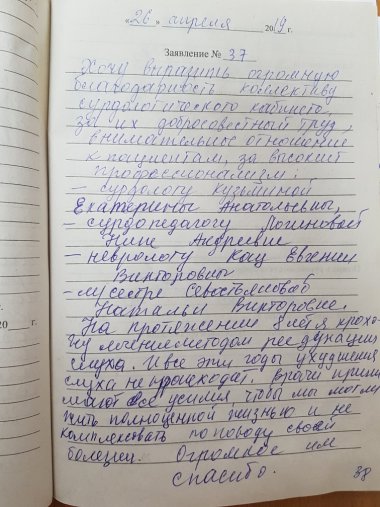 «26» апреля 2019 г.
Заявление № 37
Хочу выразить огромную
благодарность коллективу
сурдологического кабинета
за их добросовестный труд,
внимательное отношение
к пациентам, за высокий
профессионализм:
– сурдологу Кузьминой
Екатерины Анатольевны,
– сурдопедагогу Логиновой
Нине Андреевне
– неврологу Кац Евгении
Викторовны
– м/сестре Севостьяновой
Натальи Викторовне.
На протяжении 8 лет я прохо-
жу лечение методом
слуха. И все эти годы ухудшения
слуха не происходит. Врачи прини
мают все усилия чтобы мы могли
жить полноценной жизнью и не
комплексовать по поводу своей
болезни. Огромное им
спасибо.
38
20 г.